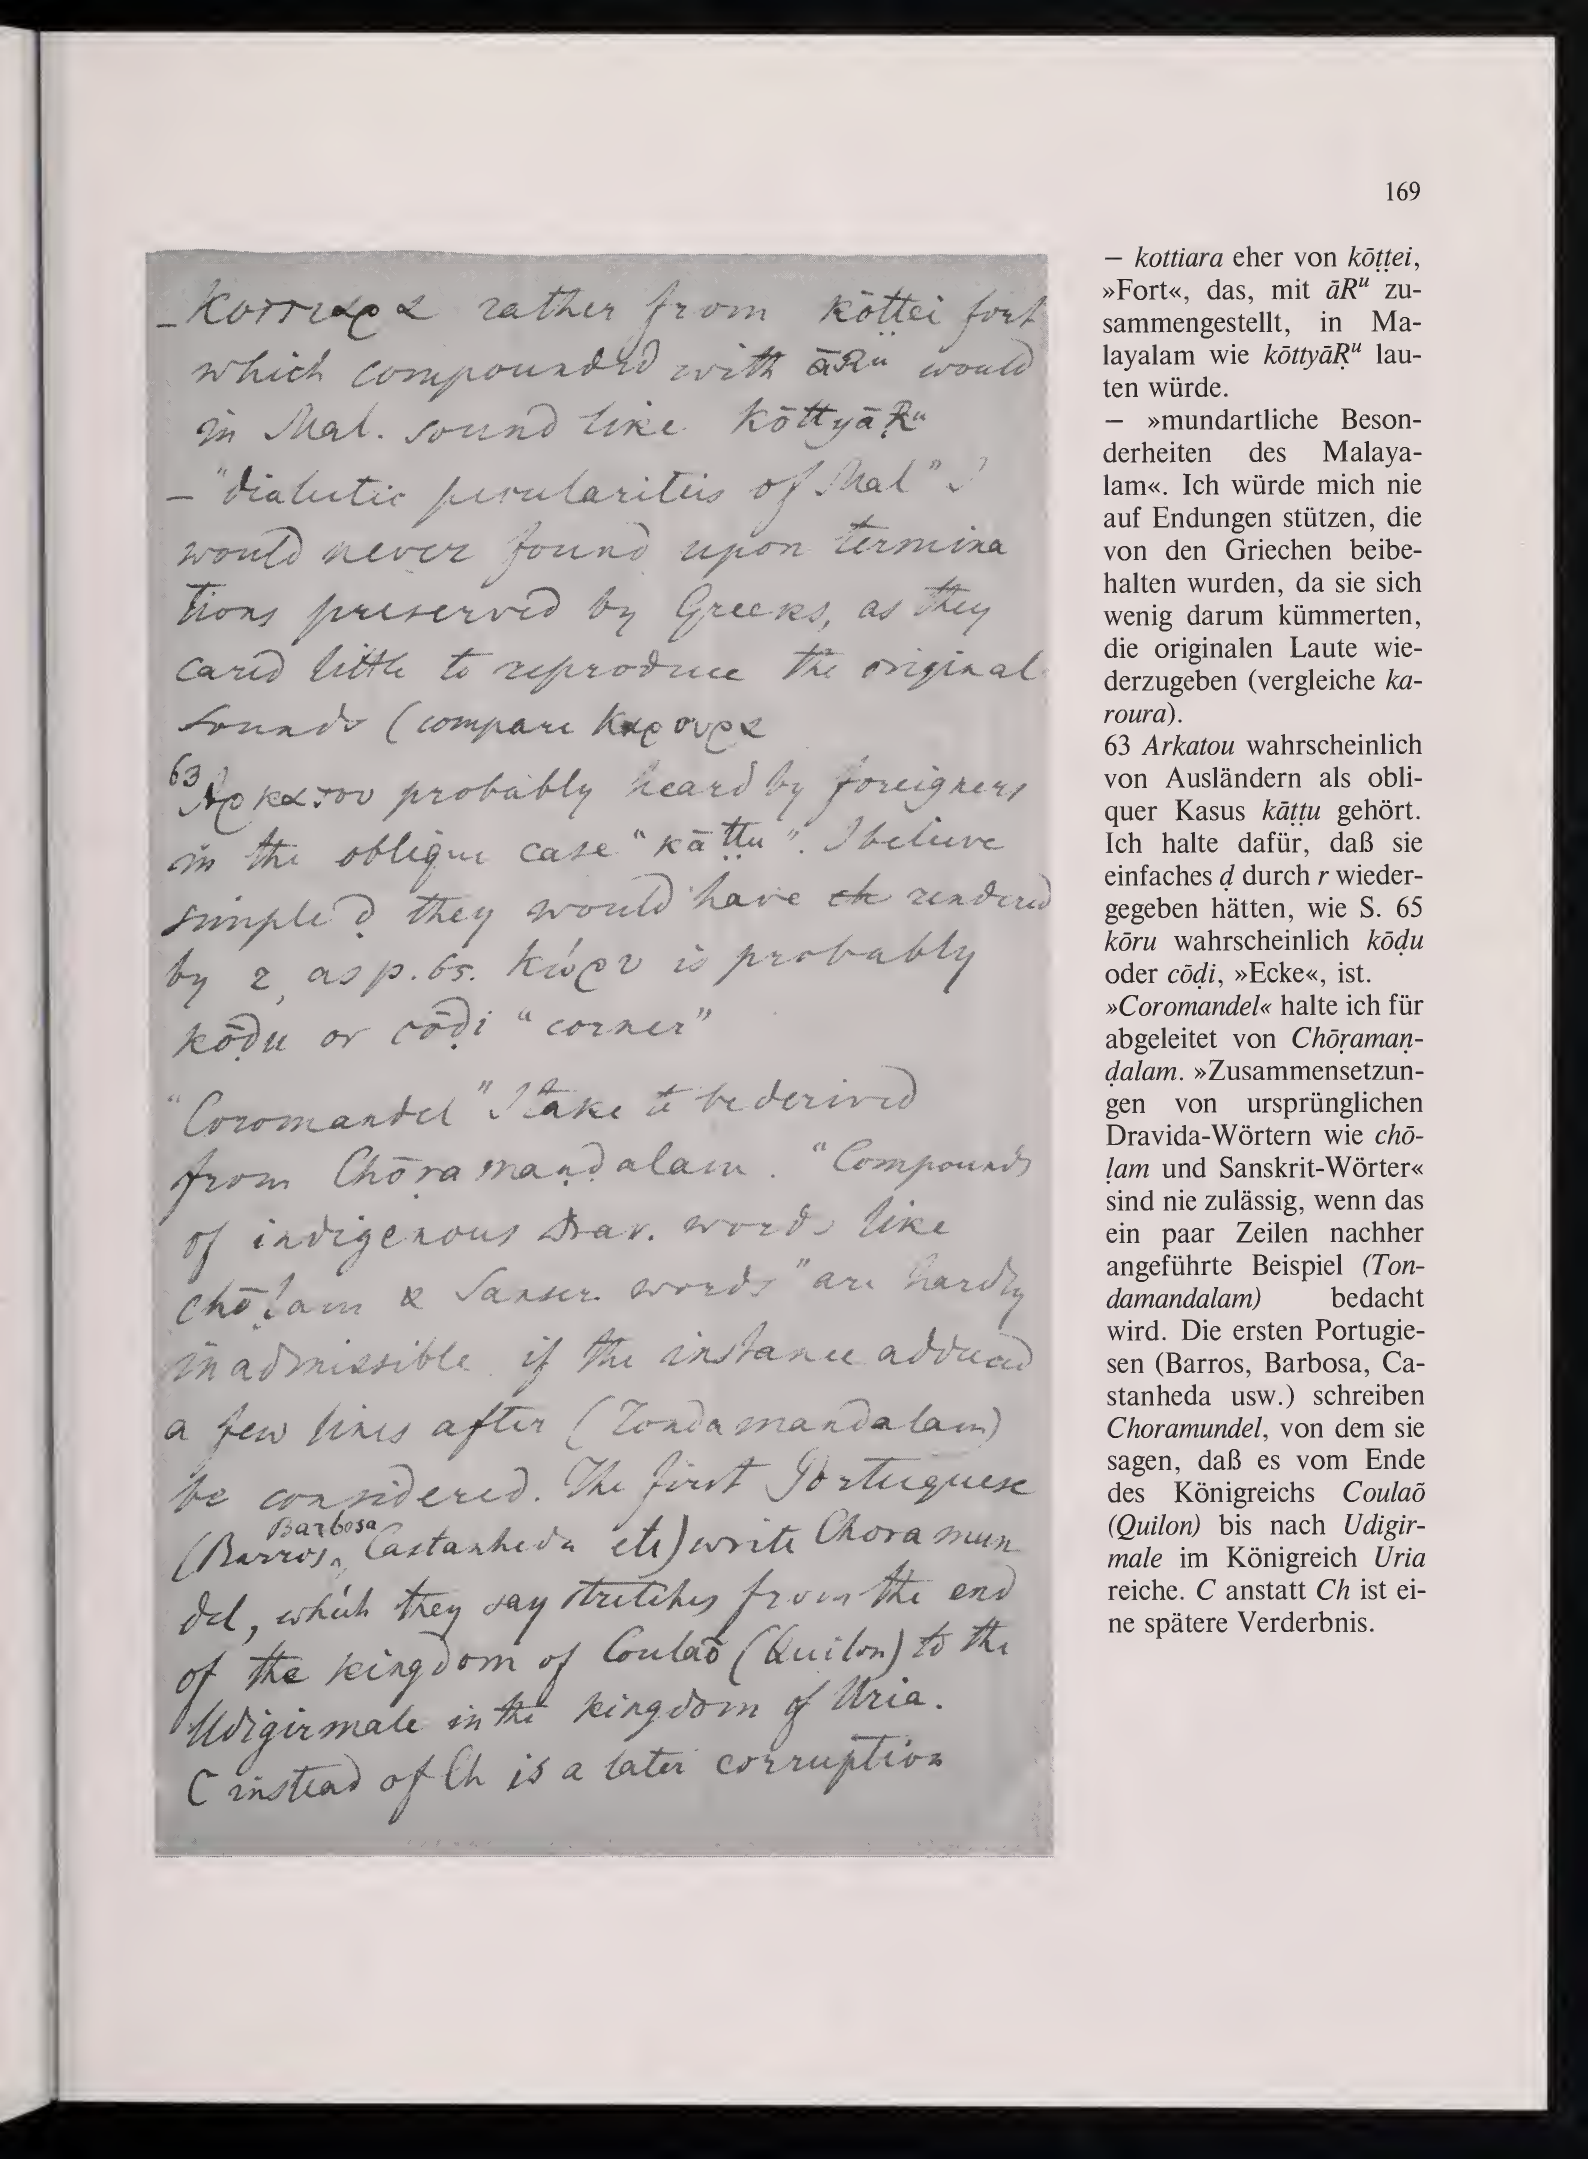 169
– Κοττιαρα rather from kōṭṭei fort
which compounded with āRᵘ would
in Mal. sound like kōttyāṚᵘ
– "dialectic peculiarities of Mal" I
would never found upon termina
tions preserved by Greeks, as they
cared little to reproduce the original
sounds (compare Καρουρα
63 Αρκατου probably heard by foreigners
in the oblique case "kāṭṭu". I believe
simple ḍ they would have rendered
by r, as p. 65. Κώρυ is probably
kōḍu or cōḍi "corner"
"Coromandel" I take to be derived
from Chōṛamaṇḍalam. "Compounds
of indigenous Drav. words like
chōḷam & Sanscr. words" are hardly
inadmissible if the instance adduced
a few lines after (Tondamandalam)
be considered. The first Portuguese
(Barros, Barbosa, Castanheda etc) write Choramun
del, which they say stretches from the end
of the kingdom of Coulaõ (Quilon) to the
Udigirmale in the kingdom of Uria.
C instead of Ch is a later corruption
– kottiara eher von kōṭṭei,
»Fort«, das, mit āRᵘ zu-
sammengestellt, in Ma-
layalam wie kōttyāṚᵘ lau-
ten würde.
– »mundartliche Beson-
derheiten des Malaya-
lam«. Ich würde mich nie
auf Endungen stützen, die
von den Griechen beibe-
halten wurden, da sie sich
wenig darum kümmerten,
die originalen Laute wie-
derzugeben (vergleiche ka-
roura).
63 Arkatou wahrscheinlich
von Ausländern als obli-
quer Kasus kāṭṭu gehört.
Ich halte dafür, daß sie
einfaches ḍ durch r wieder-
gegeben hätten, wie S. 65
kōru wahrscheinlich kōḍu
oder cōḍi, »Ecke«, ist.
»Coromandel« halte ich für
abgeleitet von Chōṛamaṇ-
ḍalam. »Zusammensetzun-
gen von ursprünglichen
Dravida-Wörtern wie chō-
ḷam und Sanskrit-Wörter«
sind nie zulässig, wenn das
ein paar Zeilen nachher
angeführte Beispiel (Ton-
damandalam) bedacht
wird. Die ersten Portugie-
sen (Barros, Barbosa, Ca-
stanheda usw.) schreiben
Choramundel, von dem sie
sagen, daß es vom Ende
des Königreichs Coulaõ
(Quilon) bis nach Udigir-
male im Königreich Uria
reiche. C anstatt Ch ist ei-
ne spätere Verderbnis.